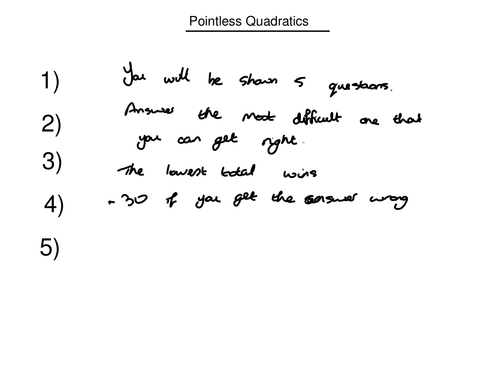 Pointless Quadratics
1) You will be shown 5 questions.
2) Answer the most difficult one that
you can get right.
3) The lowest total wins
4) - 30 if you get the answer wrong
5)